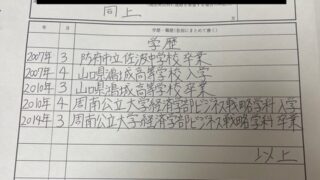 同上
学歴・職歴(各別にまとめて書く)
学歴
2007年 3 防府市立佐波中学校 卒業
2007年 4 山口県鴻城高等学校 入学
2010年 3 山口県鴻城高等学校 卒業
2010年 4 周南公立大学経済学部ビジネス戦略学科 入学
2014年 3 周南公立大学経済学部ビジネス戦略学科 卒業
以上